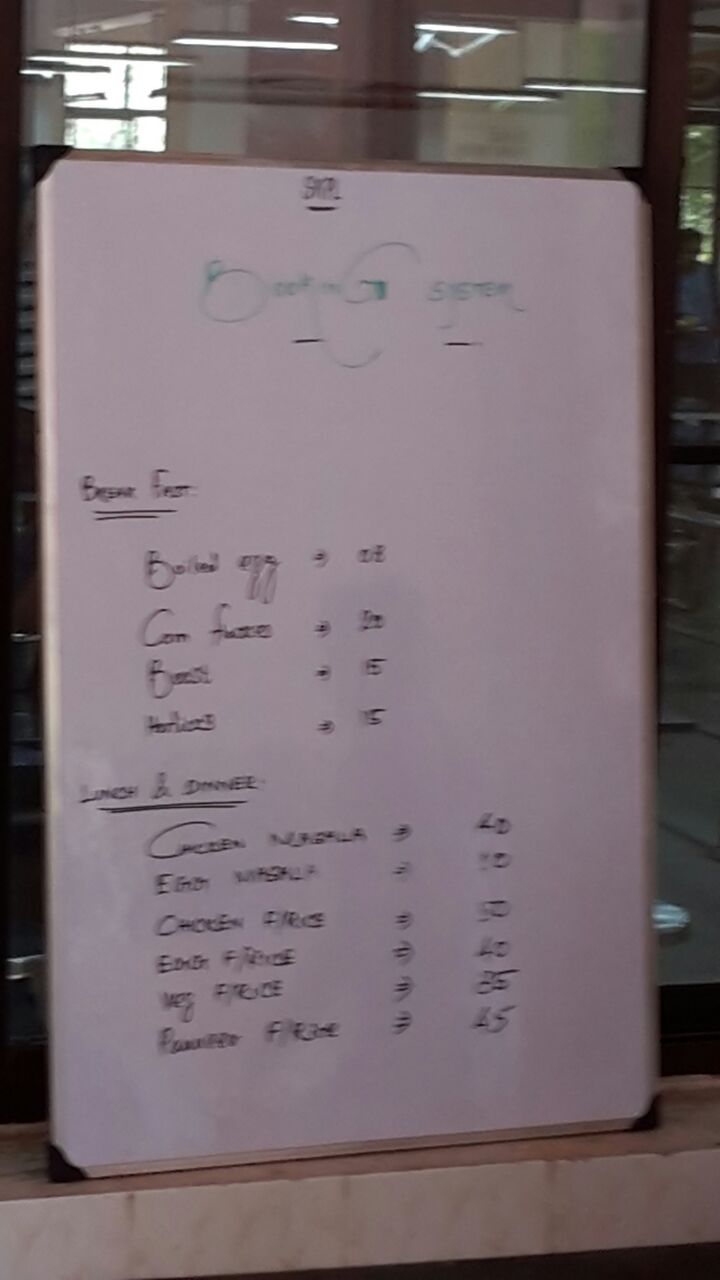 BookinG SYSTEM
Break Fast:
Boiled egg → 08
Corn flakes → 20
Boost → 15
Horlicks → 15
LUNCH & DINNER:
CHICKEN MASALLA → 40
EGG MASALLA → 10
CHICKEN F/RICE → 50
EGG F/RICE → 40
Veg F/RICE → 35
Panneer F/RICE → 45